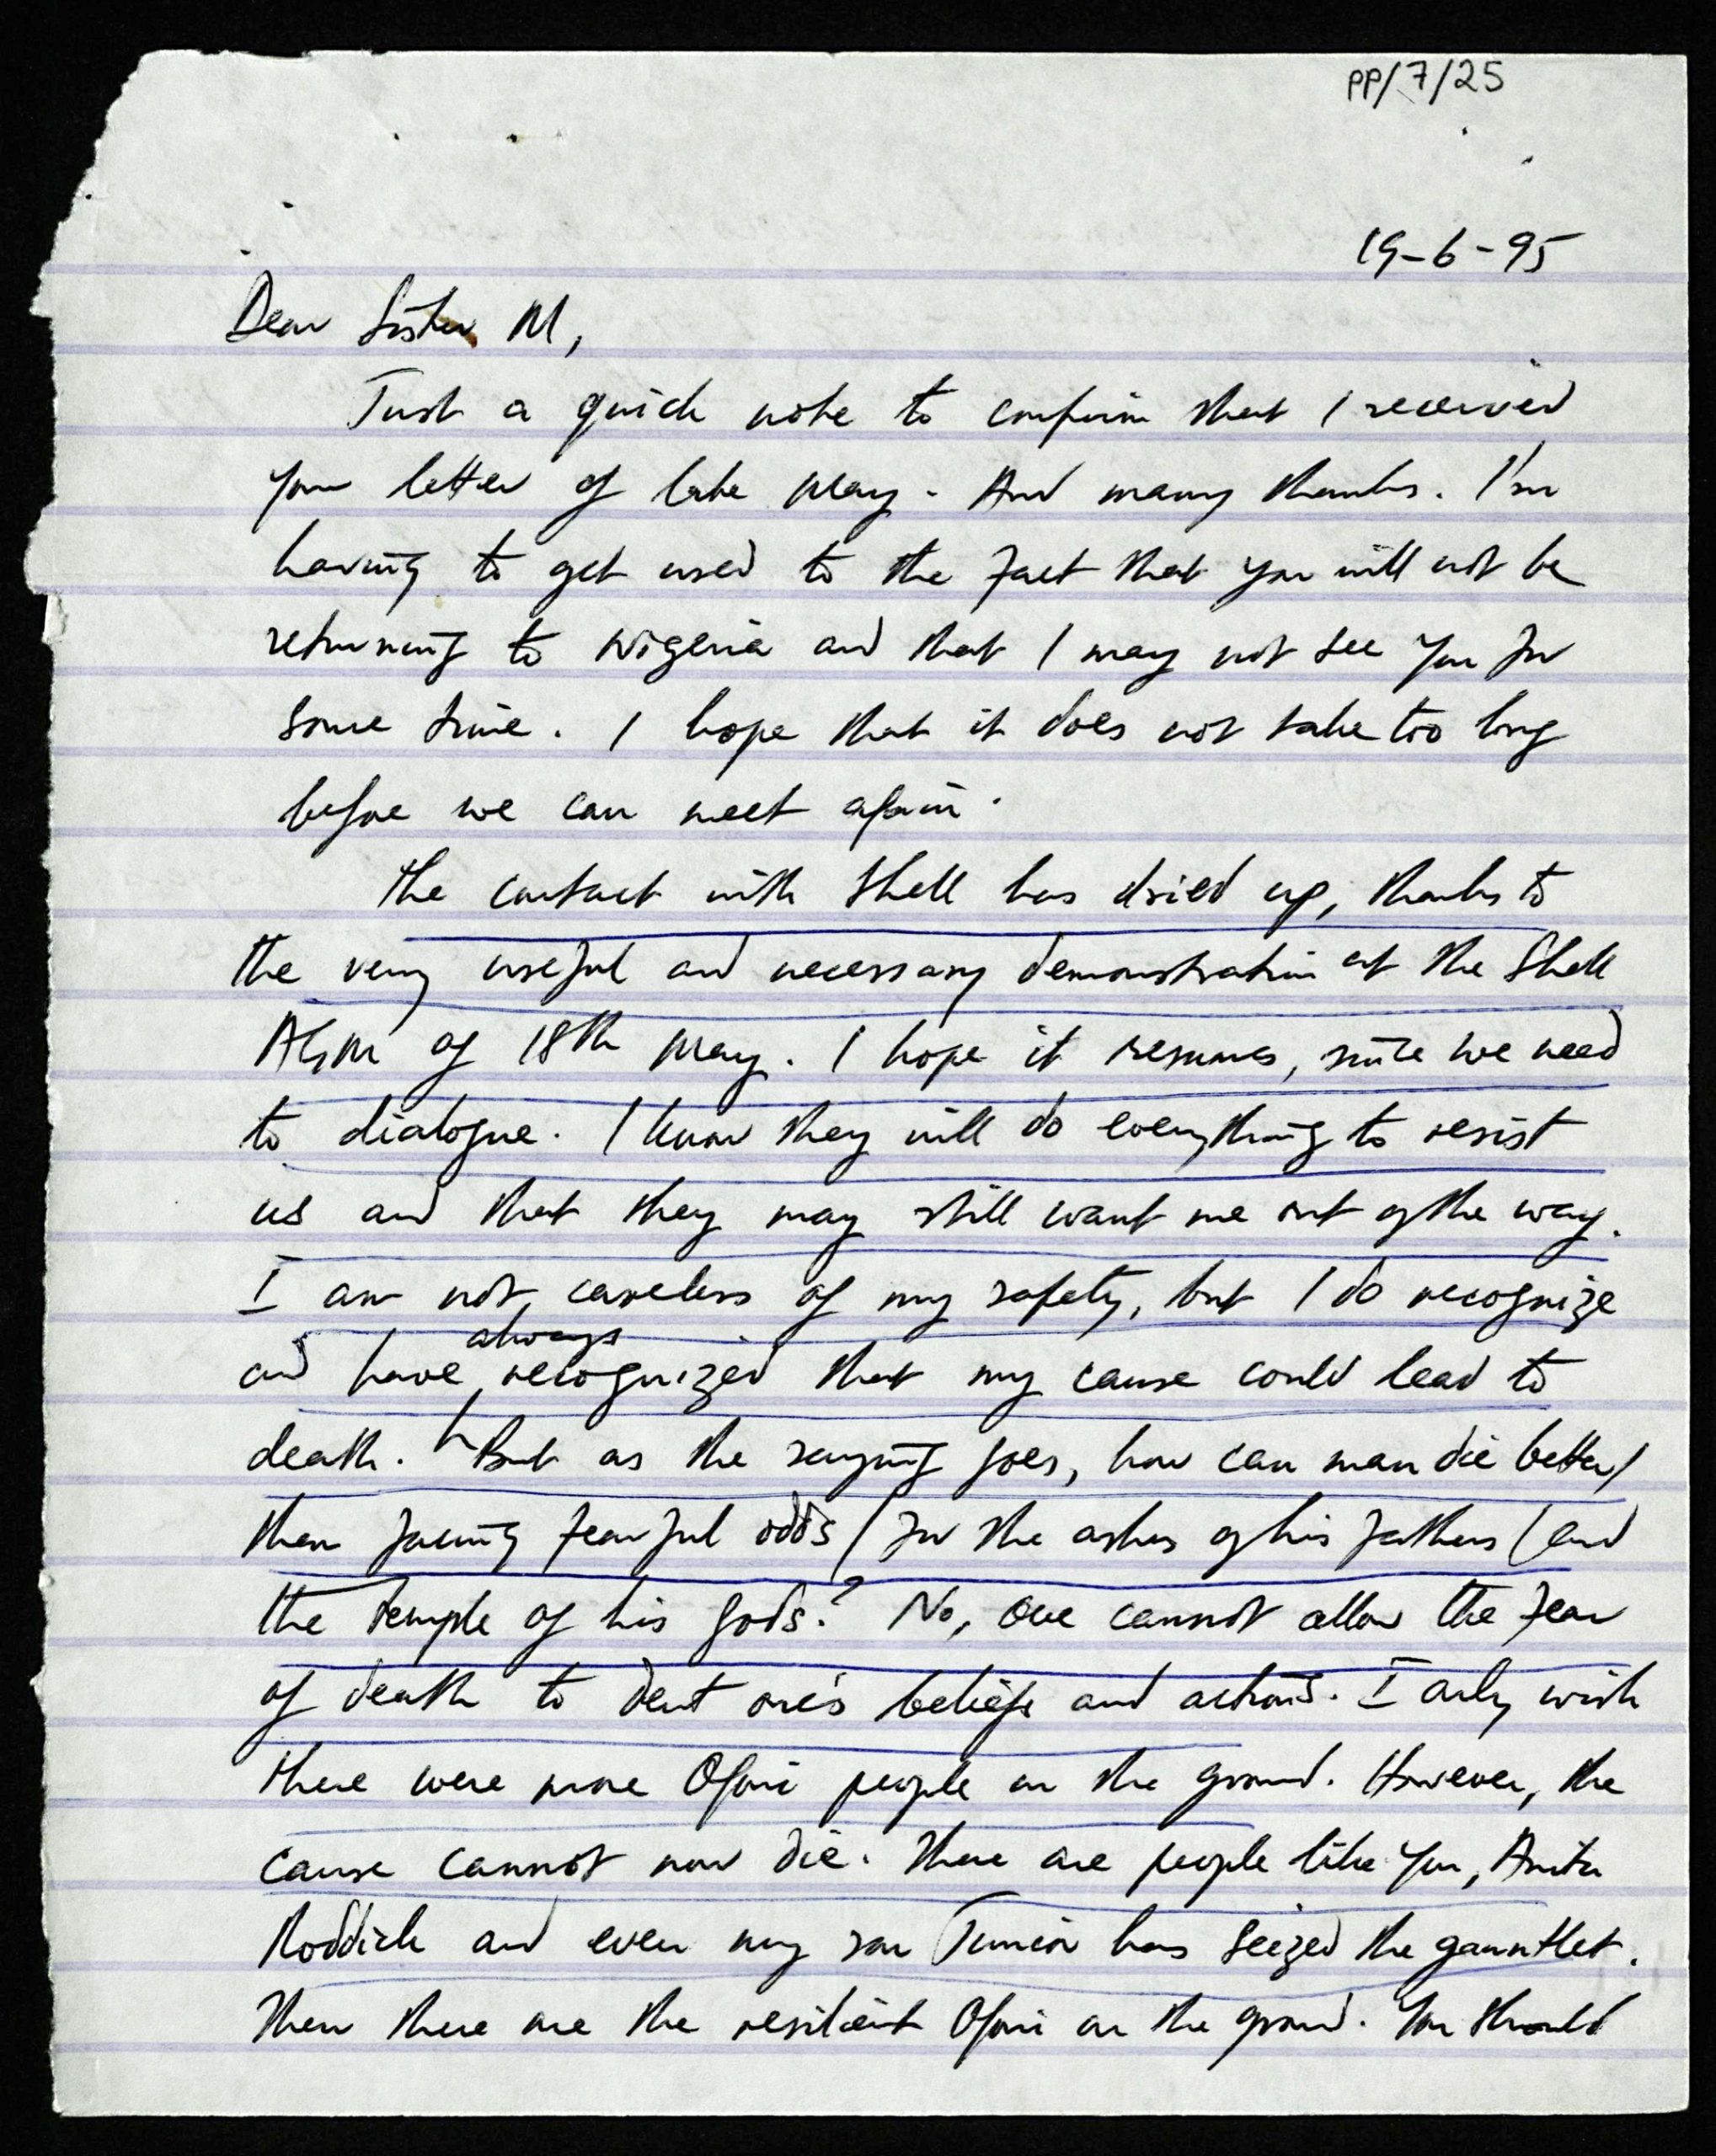 PP/7/25
19-6-95
Dear Sister M,
Just a quick note to confirm that I received
your letter of late May. And many thanks. I'm
having to get used to the fact that you will not be
returning to Nigeria and that I may not see you for
some time. I hope that it does not take too long
before we can meet again.
The contact with Shell has dried up, thanks to
the very useful and necessary demonstration at the Shell
AGM of 18th May. I hope it resumes, since we need
to dialogue. I know they will do everything to resist
us and that they may still want me out of the way.
I am not careless of my safety, but I do recognize
always
and have recognized that my cause could lead to
death. But as the saying goes, how can man die better/
than facing fearful odds/for the ashes of his fathers/and
the temple of his gods? No, one cannot allow the fear
of death to dent one's beliefs and actions. I only wish
there were more Ogoni people on the ground. However, the
cause cannot now die. There are people like you, Anita
Roddick and even my son Junior has seized the gauntlet.
Then there are the resilient Ogoni on the ground. You should